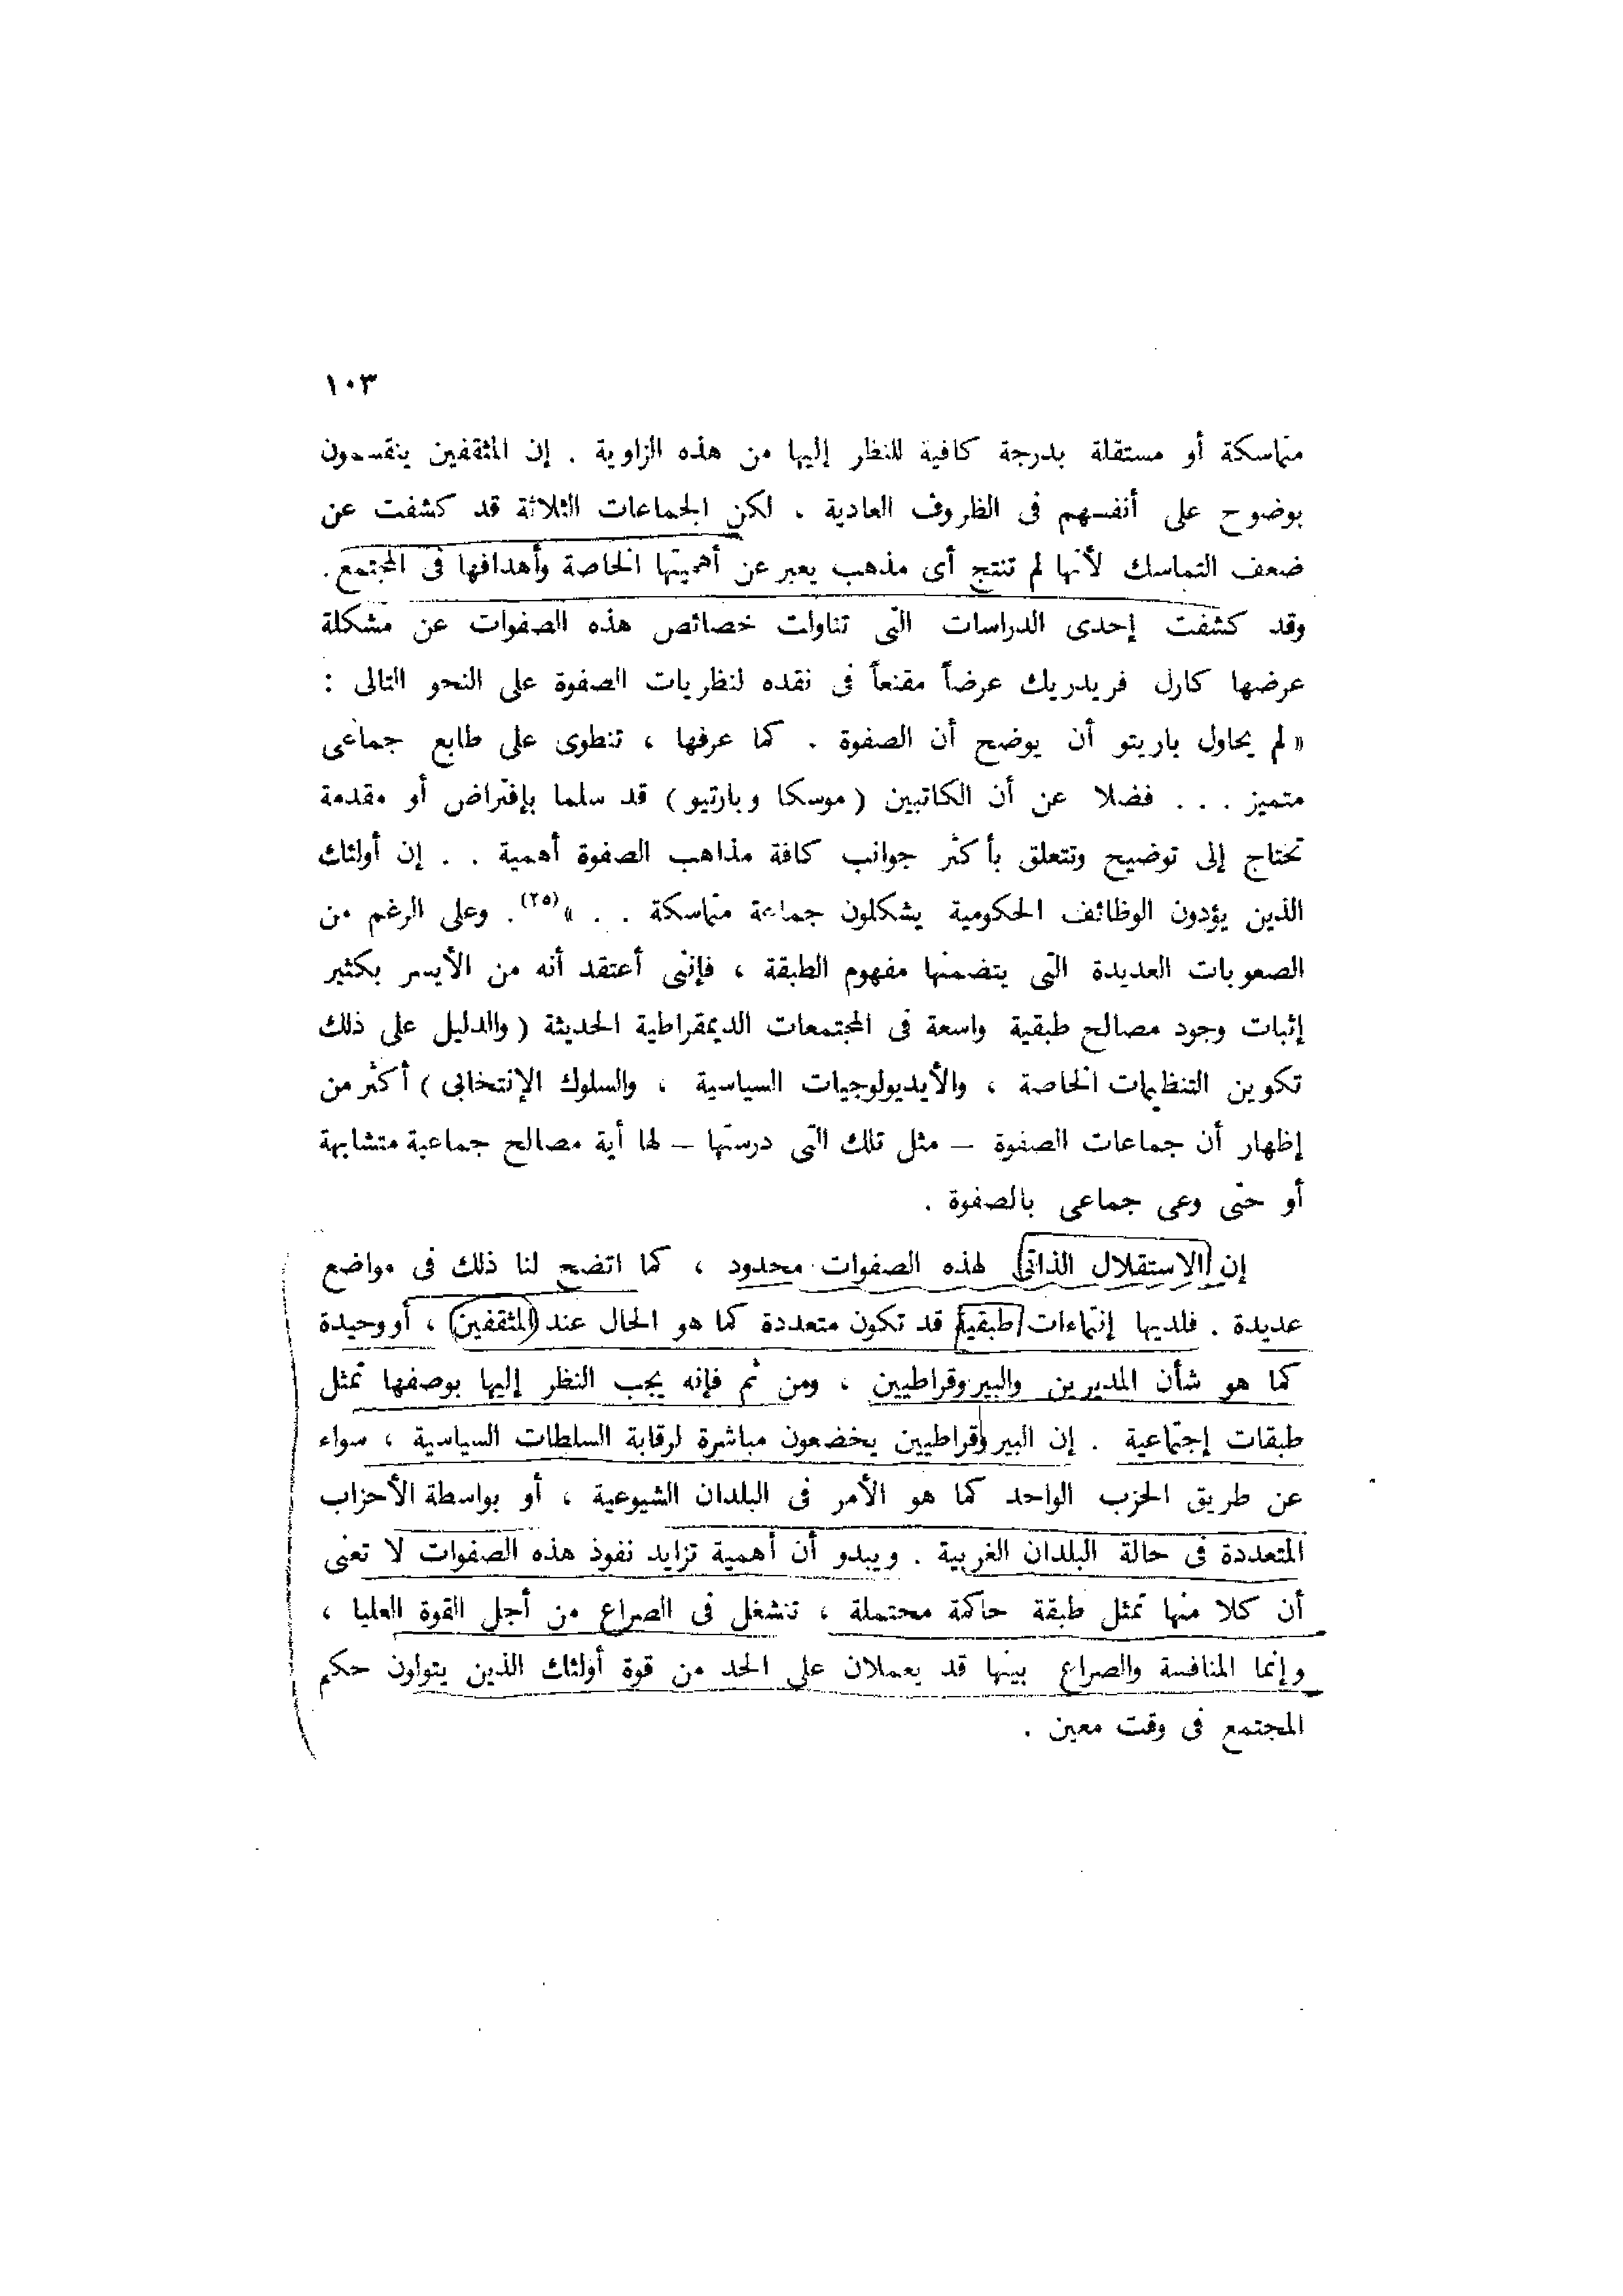 ١٠٣
متماسكة أو مستقلة بدرجة كافية للنظر إليها من هذه الزاوية . إن المثقفين ينقسمون
بوضوح على أنفسهم فى الظروف العادية . لكن الجماعات الثلاثة قد كشفت عن
ضعف التماسك لأنها لم تنتج أى مذهب يعبر عن أهميتها الخاصة وأهدافها فى المجتمع .
وقد كشفت إحدى الدراسات التى تناولت خصائص هذه الصفوات عن مشكلة
عرضها كارل فريدريك عرضاً مقنعاً فى نقده لنظريات الصفوة على النحو التالى :
« لم يحاول باريتو أن يوضح أن الصفوة . كما عرفها ، تنطوى على طابع جماعى
متميز . . . فضلا عن أن الكاتبين ( موسكا وبارتيو ) قد سلما بإفتراض أو مقدمة
تحتاج إلى توضيح وتتعلق بأكثر جوانب كافة مذاهب الصفوة أهمية . . إن أولئك
الذين يؤدون الوظائف الحكومية يشكلون جماعة متماسكة . . »(٢٥). وعلى الرغم من
الصعوبات العديدة التى يتضمنها مفهوم الطبقة ، فإننى أعتقد أنه من الأيسر بكثير
إثبات وجود مصالح طبقية واسعة فى المجتمعات الديمقراطية الحديثة ( والدليل على ذلك
تكوين التنظيمات الخاصة ، والأيديولوجيات السياسية ، والسلوك الإنتخابى ) أكثر من
إظهار أن جماعات الصفوة – مثل تلك التى درستها – لها أية مصالح جماعية متشابهة
أو حتى وعى جماعى بالصفوة .
إن الاستقلال الذاتى لهذه الصفوات محدود ، كما اتضح لنا ذلك فى مواضع
عديدة . فلديها إنتماءات طبقية قد تكون متعددة كما هو الحال عند المثقفين ، أو وحيدة
كما هو شأن المديرين والبيروقراطيين ، ومن ثم فإنه يجب النظر إليها بوصفها تمثل
طبقات إجتماعية . إن البيروقراطيين يخضعون مباشرة لرقابة السلطات السياسية ، سواء
عن طريق الحزب الواحد كما هو الأمر فى البلدان الشيوعية ، أو بواسطة الأحزاب
المتعددة فى حالة البلدان الغربية . ويبدو أن أهمية تزايد نفوذ هذه الصفوات لا تعنى
أن كلا منها تمثل طبقة حاكمة محتملة ، تنشغل فى الصراع من أجل القوة العليا ،
وإنما المنافسة والصراع بينها قد يعملان على الحد من قوة أولئك الذين يتولون حكم
المجتمع فى وقت معين .